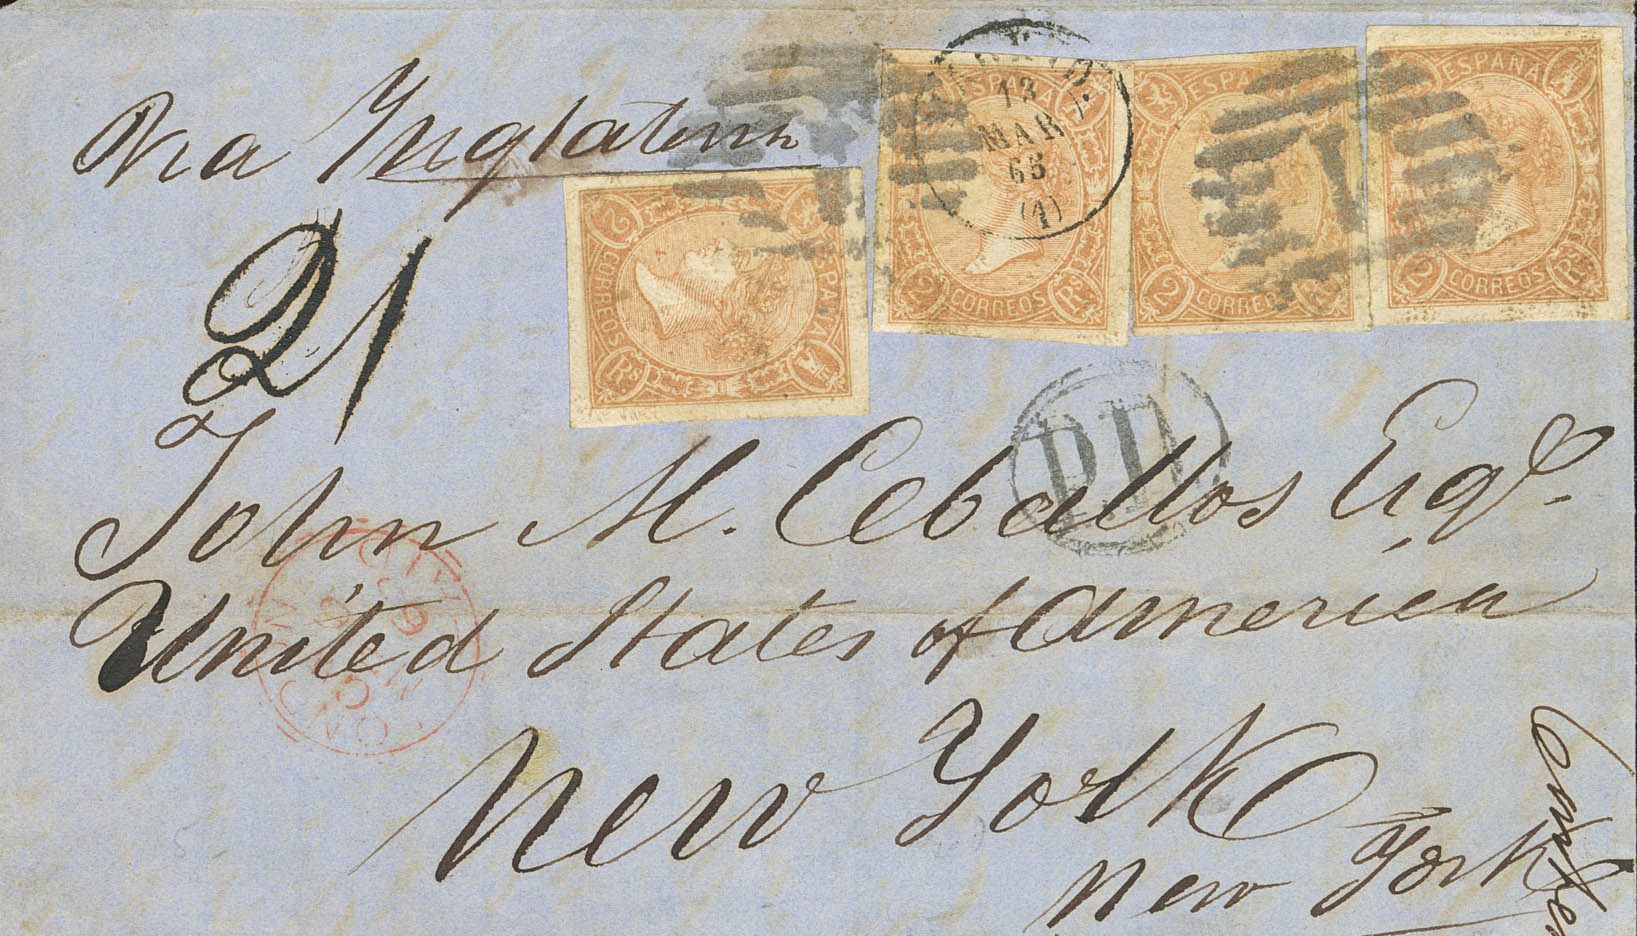 Via Inglaterra
21
ESPAÑA
CORREOS
2 Rs
MADRID
13
MAR
65
(1)
ESPAÑA
2 CORREOS Rs
ESPAÑA
2 CORREOS Rs
ESPAÑA
2 CORREOS Rs
P.D.
John M. Ceballos Esqe.
United States of America
New York
New York